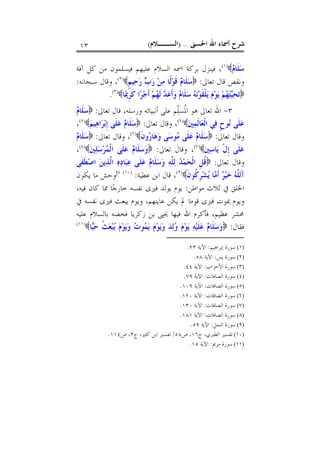 شرح أسماء الله الحسنى .. (الســـلام)
١٣
سَلَامٌ﴾(١)، فينزل بركة اسمه السلام عليهم فيسلمون من كل آفة
ونقص قال تعالى: ﴿سَلَامٌ قَوْلًا مِنْ رَبٍّ رَحِيمٍ﴾(٢)، وقال سبحانه:
﴿تَحِيَّتُهُمْ يَوْمَ يَلْقَوْنَهُ سَلَامٌ وَأَعَدَّ لَهُمْ أَجْرًا كَرِيمًا﴾(٣).
٣- الله تعالى هو المُسلِّم على أنبيائه ورسله، قال تعالى: ﴿سَلَامٌ
عَلَى نُوحٍ فِي الْعَالَمِينَ﴾(٤)، وقال تعالى: ﴿سَلَامٌ عَلَى إِبْرَاهِيمَ﴾(٥)،
وقال تعالى: ﴿سَلَامٌ عَلَى مُوسَى وَهَارُونَ﴾(٦)، وقال تعالى: ﴿سَلَامٌ
عَلَى إِلْ يَاسِينَ﴾(٧)، وقال تعالى: ﴿وَسَلَامٌ عَلَى الْمُرْسَلِينَ﴾(٨)،
وقال تعالى: ﴿قُلِ الْحَمْدُ لِلَّهِ وَسَلَامٌ عَلَى عِبَادِهِ الَّذِينَ اصْطَفَى
آللَّهُ خَيْرٌ أَمَّا يُشْرِكُونَ﴾(٩)، قال ابن عطية: (١٠) "أوحش ما يكون
الخلق في ثلاث مواطن: يوم يولد فيرى نفسه خارجًا مما كان فيه،
ويوم يموت فيرى قوما لم يكن عاينهم، ويوم يبعث فيرى نفسه في
محشر عظيم، فأكرم الله فيها يحيى بن زكريا فخصه بالسلام عليه
فقال: ﴿وَسَلَامٌ عَلَيْهِ يَوْمَ وُلِدَ وَيَوْمَ يَمُوتُ وَيَوْمَ يُبْعَثُ حَيًّا﴾(١١)
(١) سورة إبراهيم: الآية ٢٣.
(٢) سورة يس: الآية ٥٨.
(٣) سورة الأحزاب: الآية ٤٤.
(٤) سورة الصافات: الآية ٧٩.
(٥) سورة الصافات: الآية ١٠٩.
(٦) سورة الصافات: الآية ١٢٠.
(٧) سورة الصافات: الآية ١٣٠.
(٨) سورة الصافات: الآية ١٨١.
(٩) سورة النمل: الآية ٥٩.
(١٠) تفسير الطبري، ج١٦، ص٥٨/ تفسير ابن كثير، ج٣، ص١١٤.
(١١) سورة مريم: الآية ١٥.